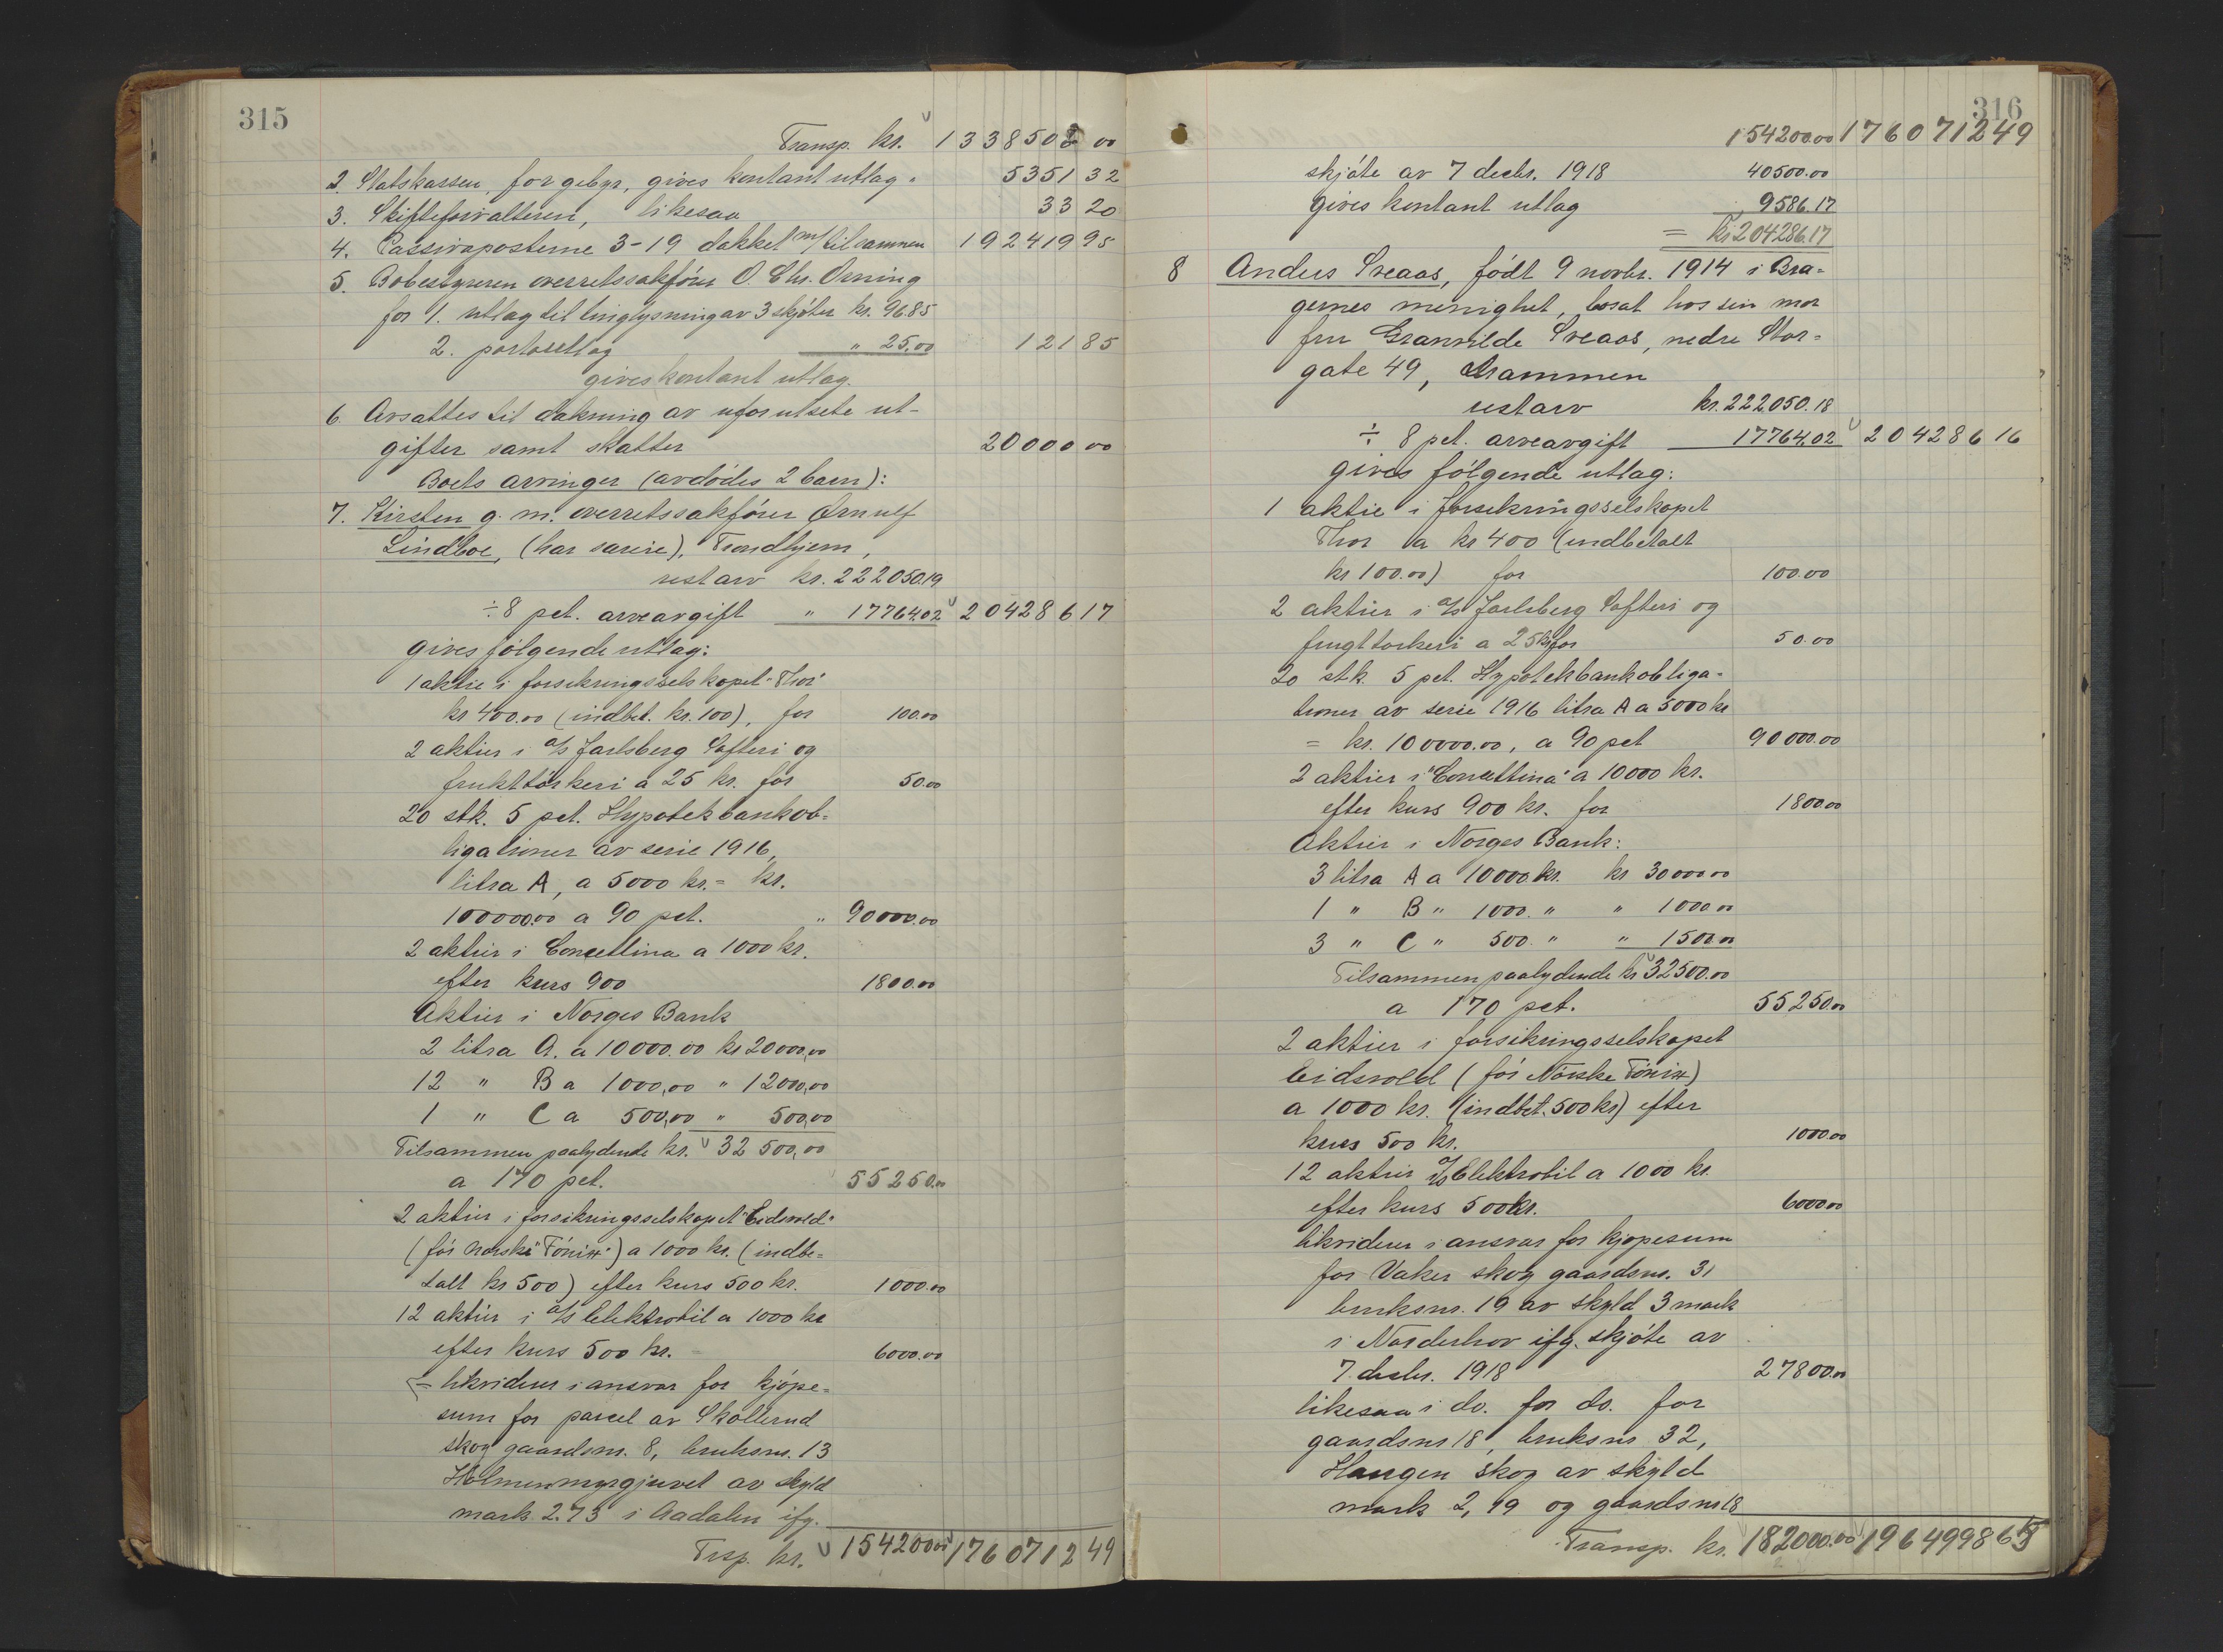 315
Transp. kr. 1338502 00
2. Statskassen, for gebyr, gives kontant utlæg " 5351 32
3. Skifteforvalteren, likesaa 33 20
4. Passivaposterne 3-19 dækket m/ tilsammen 192419 95
5. Bobestyreren overretssakfører O. Chr. Orning
for 1. utlæg til tinglysning av 3 skjøter kr. 96.85
2. portoutlæg " 25.00 121 85
gives kontant utlæg.
6. Avsættes til dækning av uforutsete ut-
gifter samt skatter 20000 00
Boets arvinger (avdødes 2 barn):
7. Kirsten g. m. overretssakfører Ørnulf
Lindboe, (har særeie), Trondhjem,
restarv kr. 222050.19
÷ 8 pct. arveavgift " 17764.02 204286 17
gives følgende utlæg:
1 aktie i forsikringsselskapet "Thor"
kr 400.00 (indbet. kr. 100), for 100.00
2 aktier i A/S Jarlsberg Safteri og
frukttørkeri a 25 kr. for 50.00
20 stk. 5 pct. Hypotekbankob-
ligationer av serie 1916,
litra A, a 5000 kr. = kr.
100000.00 a 90 pct. " 90000.00
2 aktier i Concettina a 1000 kr.
efter kurs 900 1800.00
Aktier i Norges Bank
2 litra A. a 10000.00 kr 20000,00
12 " B a 1000,00 " 12000,00
1 " C a 500,00 " 500,00
Tilsammen paalydende kr. 32500,00
a 170 pct. 55250.00
2 aktier i forsikringsselskapet "Eidsvold"
(før Norske "Fønix") a 1000 kr. (indbe-
talt kr 500) efter kurs 500 kr. 1000.00
12 aktier i A/S Elektrobil a 1000 kr
efter kurs 500 kr. 6000.00
= likviderer i ansvar for kjøpe-
sum for parcel av Skollerud
skog gaardsnr. 8, bruksnr. 13
Holmenmyrgjuvet av skyld
mark 2.73 i Aadalen ifg.
Trsp. kr. 154200.00 1760712 49
316
154200.00 1760712 49
skjøte av 7 decbr. 1918 40500.00
gives kontant utlæg 9586.17
= kr 204286.17
8 Anders Sveaas, født 9 novbr. 1914 i Bra-
gernes menighet, bosat hos sin mor
fru Sveaas, nedre Stor-
gate 49, Drammen
restarv kr. 222050.18
÷ 8 pct. arveavgift 17764.02 204286 16
gives følgende utlæg:
1 aktie i forsikringsselskapet
Thor a kr 400 (indbetalt
kr 100.00) for 100.00
2 aktier i A/S Jarlsberg Safteri og
frugttørkeri a 25 kr for 50.00
20 stk. 5 pct. Hypotekbankobliga-
tioner av serie 1916 litra A a 5000 kr
= kr. 100000.00, a 90 pct 90000.00
2 aktier i "Concettina" a 10000 kr.
efter kurs 900 kr. for 1800.00
Aktier i Norges Bank:
3 litra A a 10000 kr. kr 30000.00
1 " B " 1000. " " 1000.00
3 " C " 500. " " 1500.00
Tilsammen paalydende kr 32500.00
a 170 pct. 55250.00
2 aktier i forsikringsselskapet
Eidsvold (før Norske Fønix)
a 1000 kr. (indbet. 500 kr) efter
kurs 500 kr. 1000.00
12 aktier A/S Elektrobil a 1000 kr.
efter kurs 500 kr. 6000.00
likviderer i ansvar for kjøpesum
for Vaker skog gaardsnr. 31
bruksnr. 19 av skyld 3 mark
i Norderhov ifg. skjøte av
7. decbr. 1918 27800.00
likesaa i do. for do. for
gaardsnr 18, bruksnr 32,
Haugen skog av skyld
mark 2,49 og gaardsnr 18
Transp. kr. 182000.00 1964998 65